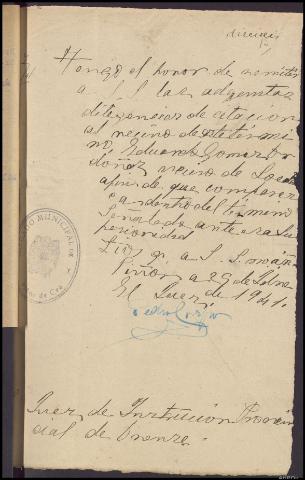 Tengo el honor de remitir
a S.S. las adjuntas
diligencias de citacion
al vecino de este termi
no, Eduardo Gomez Or
doñez vecino de
afin de que comparez
ca dentro del termino
señalado ante esa Su
perioridad
Dios g. a S.S. m. a.
Piñor a 29 de
de 1941.
El Juez
Juez de Instrucion Provin
cial de Orense.